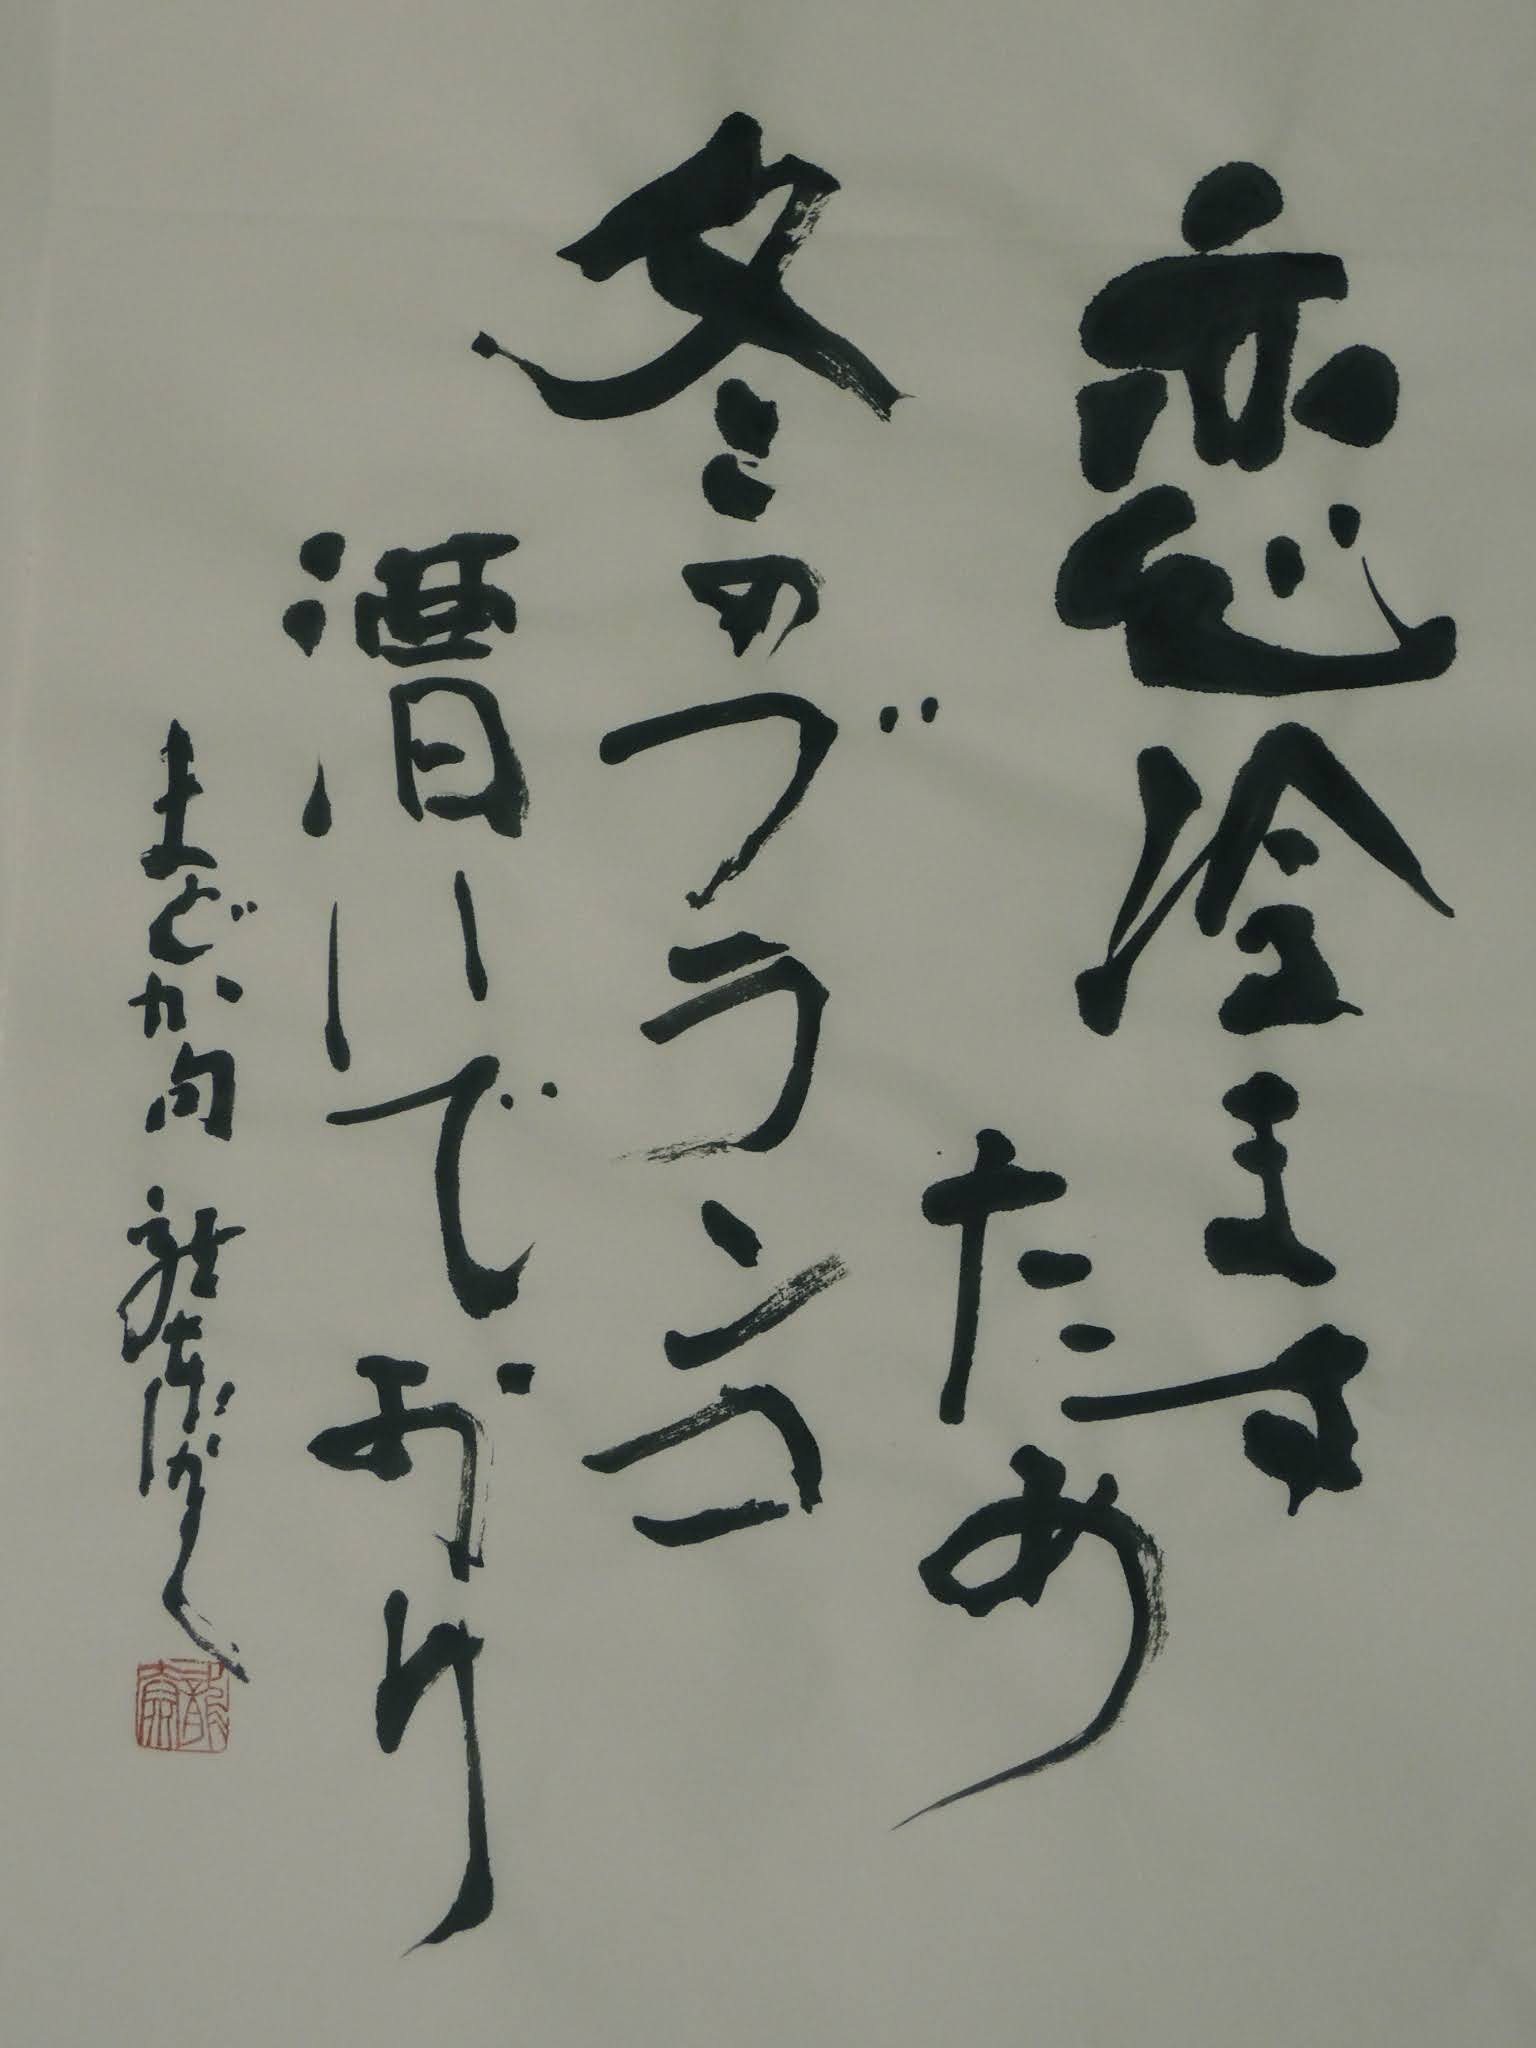 恋冷ます
ため
冬のブランコ
漕いでおり
まどか句